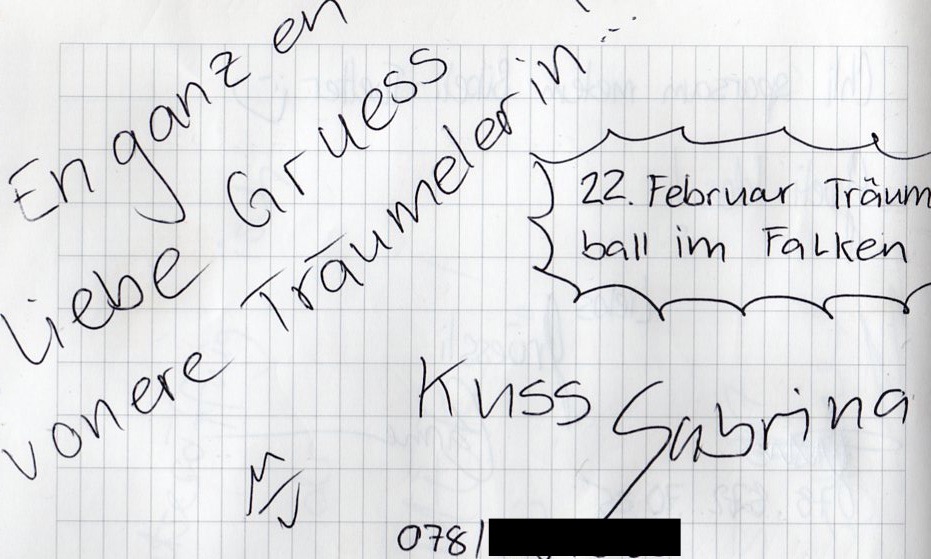 En ganz en
liebe Gruess
vonere Träumelerin!
22. Februar Träum
ball im Falken
Kuss Sabrina
078/